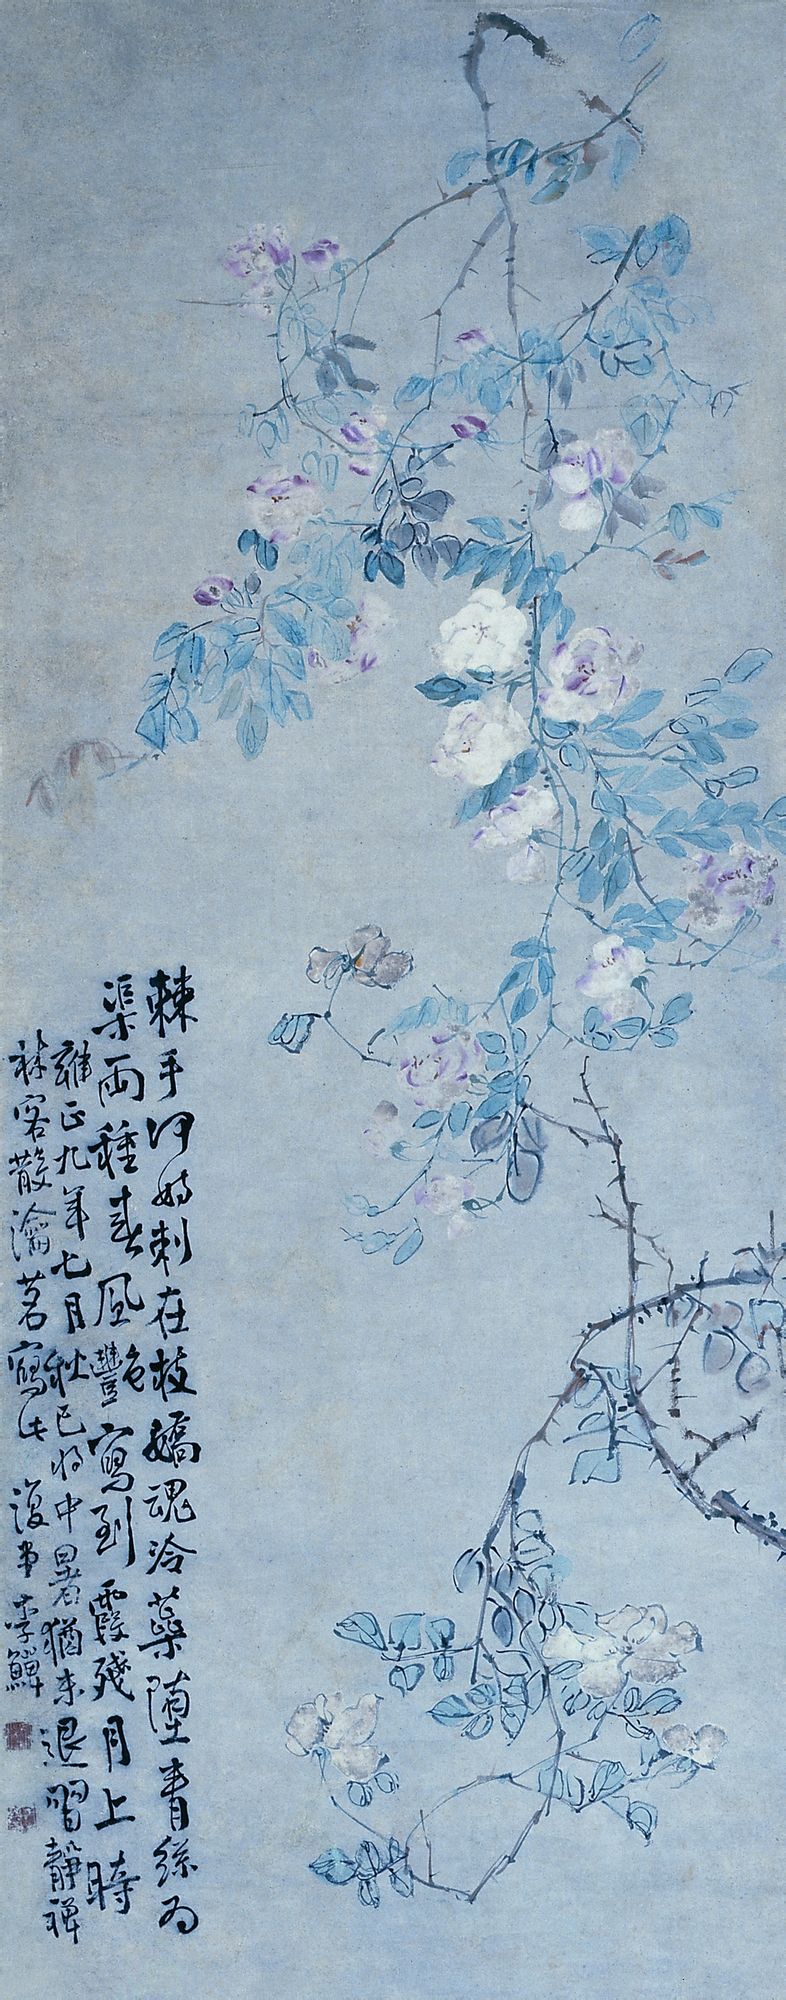 棘手何妨刺在枝嬌魂冷蘂墮青絲為
渠兩種春風色豐寫到霞殘月上時
雍正九年七月秋已將中暑猶未退習靜禪
林客散瀹茗寫此復堂李鱓